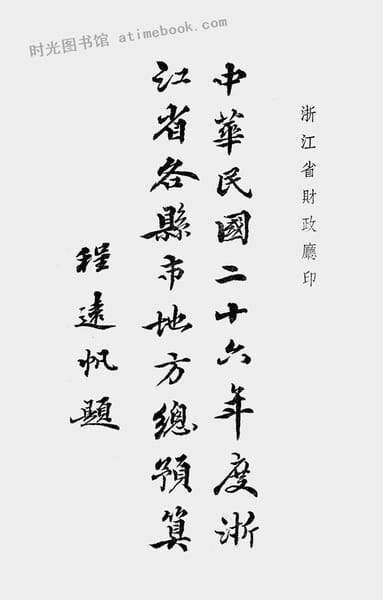 时光图书馆 atimebook.com
浙江省財政廳印
中華民國二十六年度浙
江省各縣市地方總預算
程遠帆題